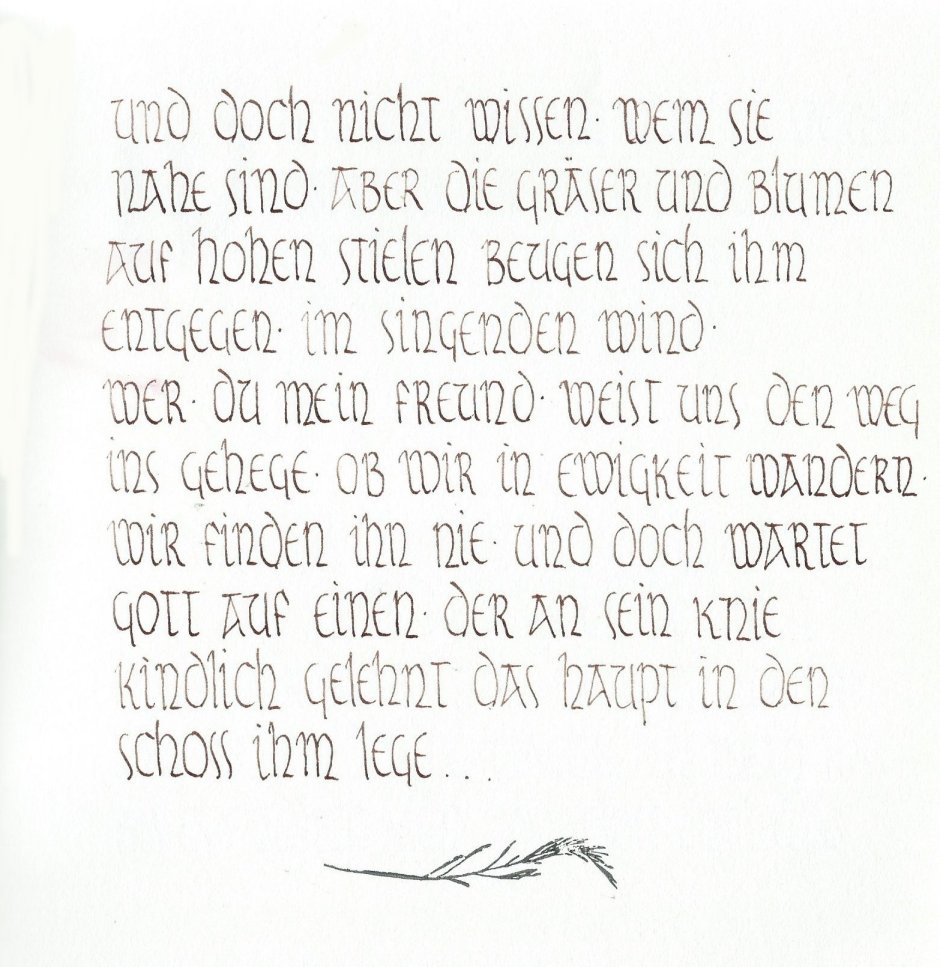 und doch nicht wissen· wem sie
nahe sind· aber die gräser und blumen
auf hohen stielen beugen sich ihm
entgegen· im singenden wind·
wer· du mein freund· weist uns den weg
ins gehege· ob wir in ewigkeit wandern·
wir finden ihn nie· und doch wartet
gott auf einen· der an sein knie
kindlich gelehnt das haupt in den
schoss ihm lege...